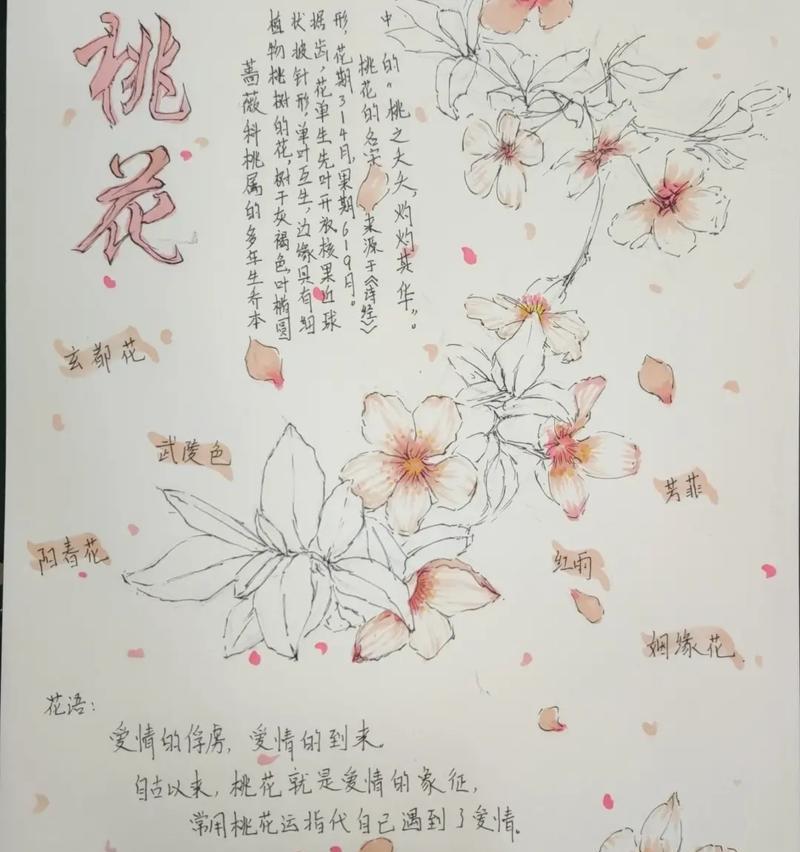 桃花
蔷薇科桃属的多年生乔本
植物桃树的花,树干灰褐色,叶椭圆
状披针形,单叶互生,边缘具有细
据齿,花单生先叶开放核果近球
形,花期314月,果期619月。
桃花的名字来源于《诗经》
中的“桃之夭夭,灼灼其华”。
玄都花
武陵色
阳春花
芳菲
红雨
姻缘花
花语:
爱情的俘虏,爱情的到来。
自古以来,桃花就是爱情的象征,
常用桃花运指代自己遇到了爱情。